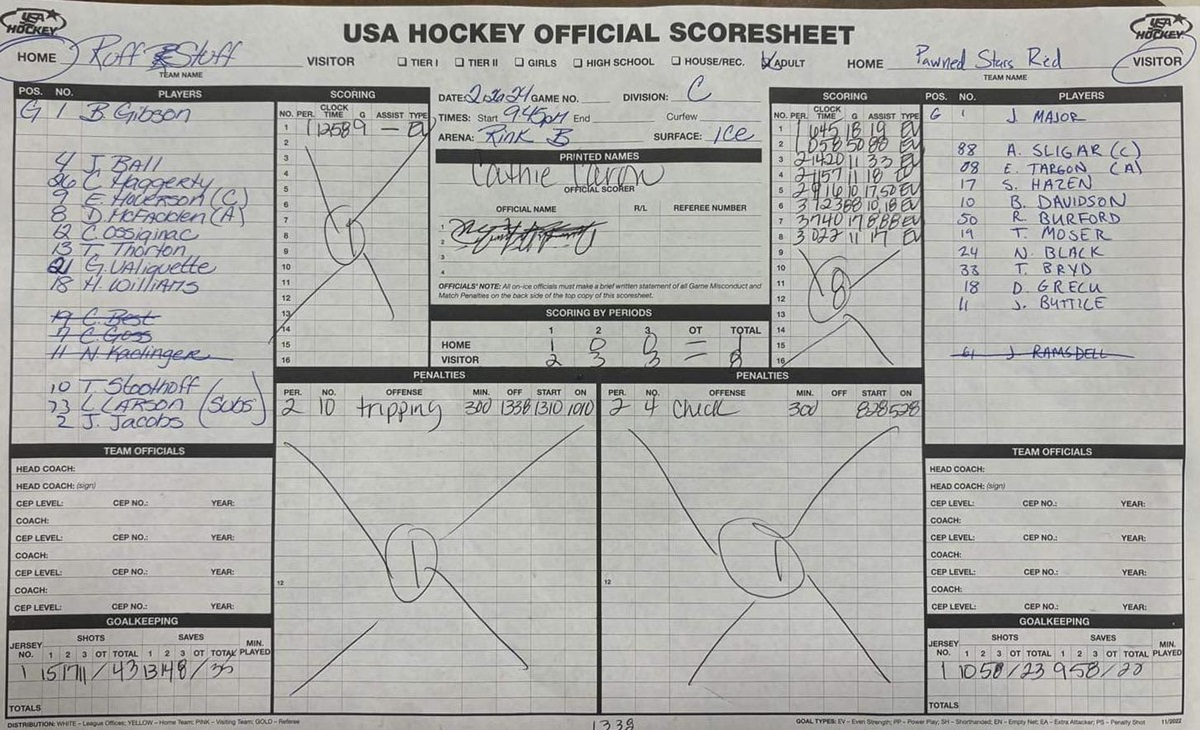 USA HOCKEY
USA HOCKEY OFFICIAL SCORESHEET
USA HOCKEY
HOME Ruff Stuff VISITOR TIER I TIER II GIRLS HIGH SCHOOL HOUSE/REC. ADULT HOME Pawned Stars Red VISITOR
TEAM NAME
TEAM NAME
POS. NO. PLAYERS
G 1 B. Gibson
4 J. BALL
26 C. Haggerty
9 E. Hoverson (C)
8 D. McFadden (A)
12 C. Ossiginac
13 T. Thorton
21 G. Valiquette
18 H. Williams
19 C. Best
7 C. Goss
11 N. Kaelinger
10 T. Stoothoff
73 L. LARSON (Subs)
2 J. Jacobs
SCORING
NO. PER. CLOCK TIME G ASSIST TYPE
1 1 1258 9 — EV
2
3
4
5
6
7
8
9
10
11
12
13
14
15
16
1
DATE: GAME NO. DIVISION: C
TIMES: Start 9:45pm End Curfew
ARENA: Rink B SURFACE: ICE
PRINTED NAMES
Cathie Caron
OFFICIAL SCORER
OFFICIAL NAME R/L REFEREE NUMBER
1
2
3
4
OFFICIALS' NOTE: All on-ice officials must make a brief written statement of all Game Misconduct and
Match Penalties on the back side of the top copy of this scoresheet.
SCORING BY PERIODS
1 2 3 OT TOTAL
HOME 1 0 0 — 1
VISITOR 2 3 3 — 8
SCORING
NO. PER. CLOCK TIME G ASSIST TYPE
1 1 645 18 19 EV
2 1 058 50 88 EV
3 2 1420 11 33 EV
4 2 1157 11 18 EV
5 2 916 10 17,50 EV
6 3 1238 8 10,18 EV
7 3 740 17 8,88 EV
8 3 022 11 17 EV
9
10
11
12
13
14
15
16
8
POS. NO. PLAYERS
G 1 J. MAJOR
88 A. SLIGAR (C)
08 E. TARGON (A)
17 S. HAZEN
10 B. DAVIDSON
50 R. BURFORD
19 T. MOSER
24 N. BLACK
33 T. BRYD
18 D. GRECU
11 J. BUTTICE
61 J RAMSDELL
PENALTIES
PER. NO. OFFENSE MIN. OFF START ON
2 10 tripping 300 1338 1310 1010
12
1
PENALTIES
PER. NO. OFFENSE MIN. OFF START ON
2 4 check 300 828 528
12
1
TEAM OFFICIALS
HEAD COACH:
HEAD COACH: (sign)
CEP LEVEL: CEP NO.: YEAR:
COACH:
CEP LEVEL: CEP NO.: YEAR:
COACH:
CEP LEVEL: CEP NO.: YEAR:
COACH:
CEP LEVEL: CEP NO.: YEAR:
TEAM OFFICIALS
HEAD COACH:
HEAD COACH: (sign)
CEP LEVEL: CEP NO.: YEAR:
COACH:
CEP LEVEL: CEP NO.: YEAR:
COACH:
CEP LEVEL: CEP NO.: YEAR:
COACH:
CEP LEVEL: CEP NO.: YEAR:
GOALKEEPING
SHOTS SAVES
JERSEY NO. 1 2 3 OT TOTAL 1 2 3 OT TOTAL MIN. PLAYED
1 15 17 11 / 43 13 14 8 / 35
TOTALS
GOALKEEPING
SHOTS SAVES
JERSEY NO. 1 2 3 OT TOTAL 1 2 3 OT TOTAL MIN. PLAYED
1 10 5 8 / 23 9 5 8 / 22
TOTALS
DISTRIBUTION: WHITE – League Offices; YELLOW – Home Team; PINK – Visiting Team; GOLD – Referee
1338
GOAL TYPES: EV – Even Strength; PP – Power Play; SH – Shorthanded; EN – Empty Net; EA – Extra Attacker; PS – Penalty Shot 11/2022